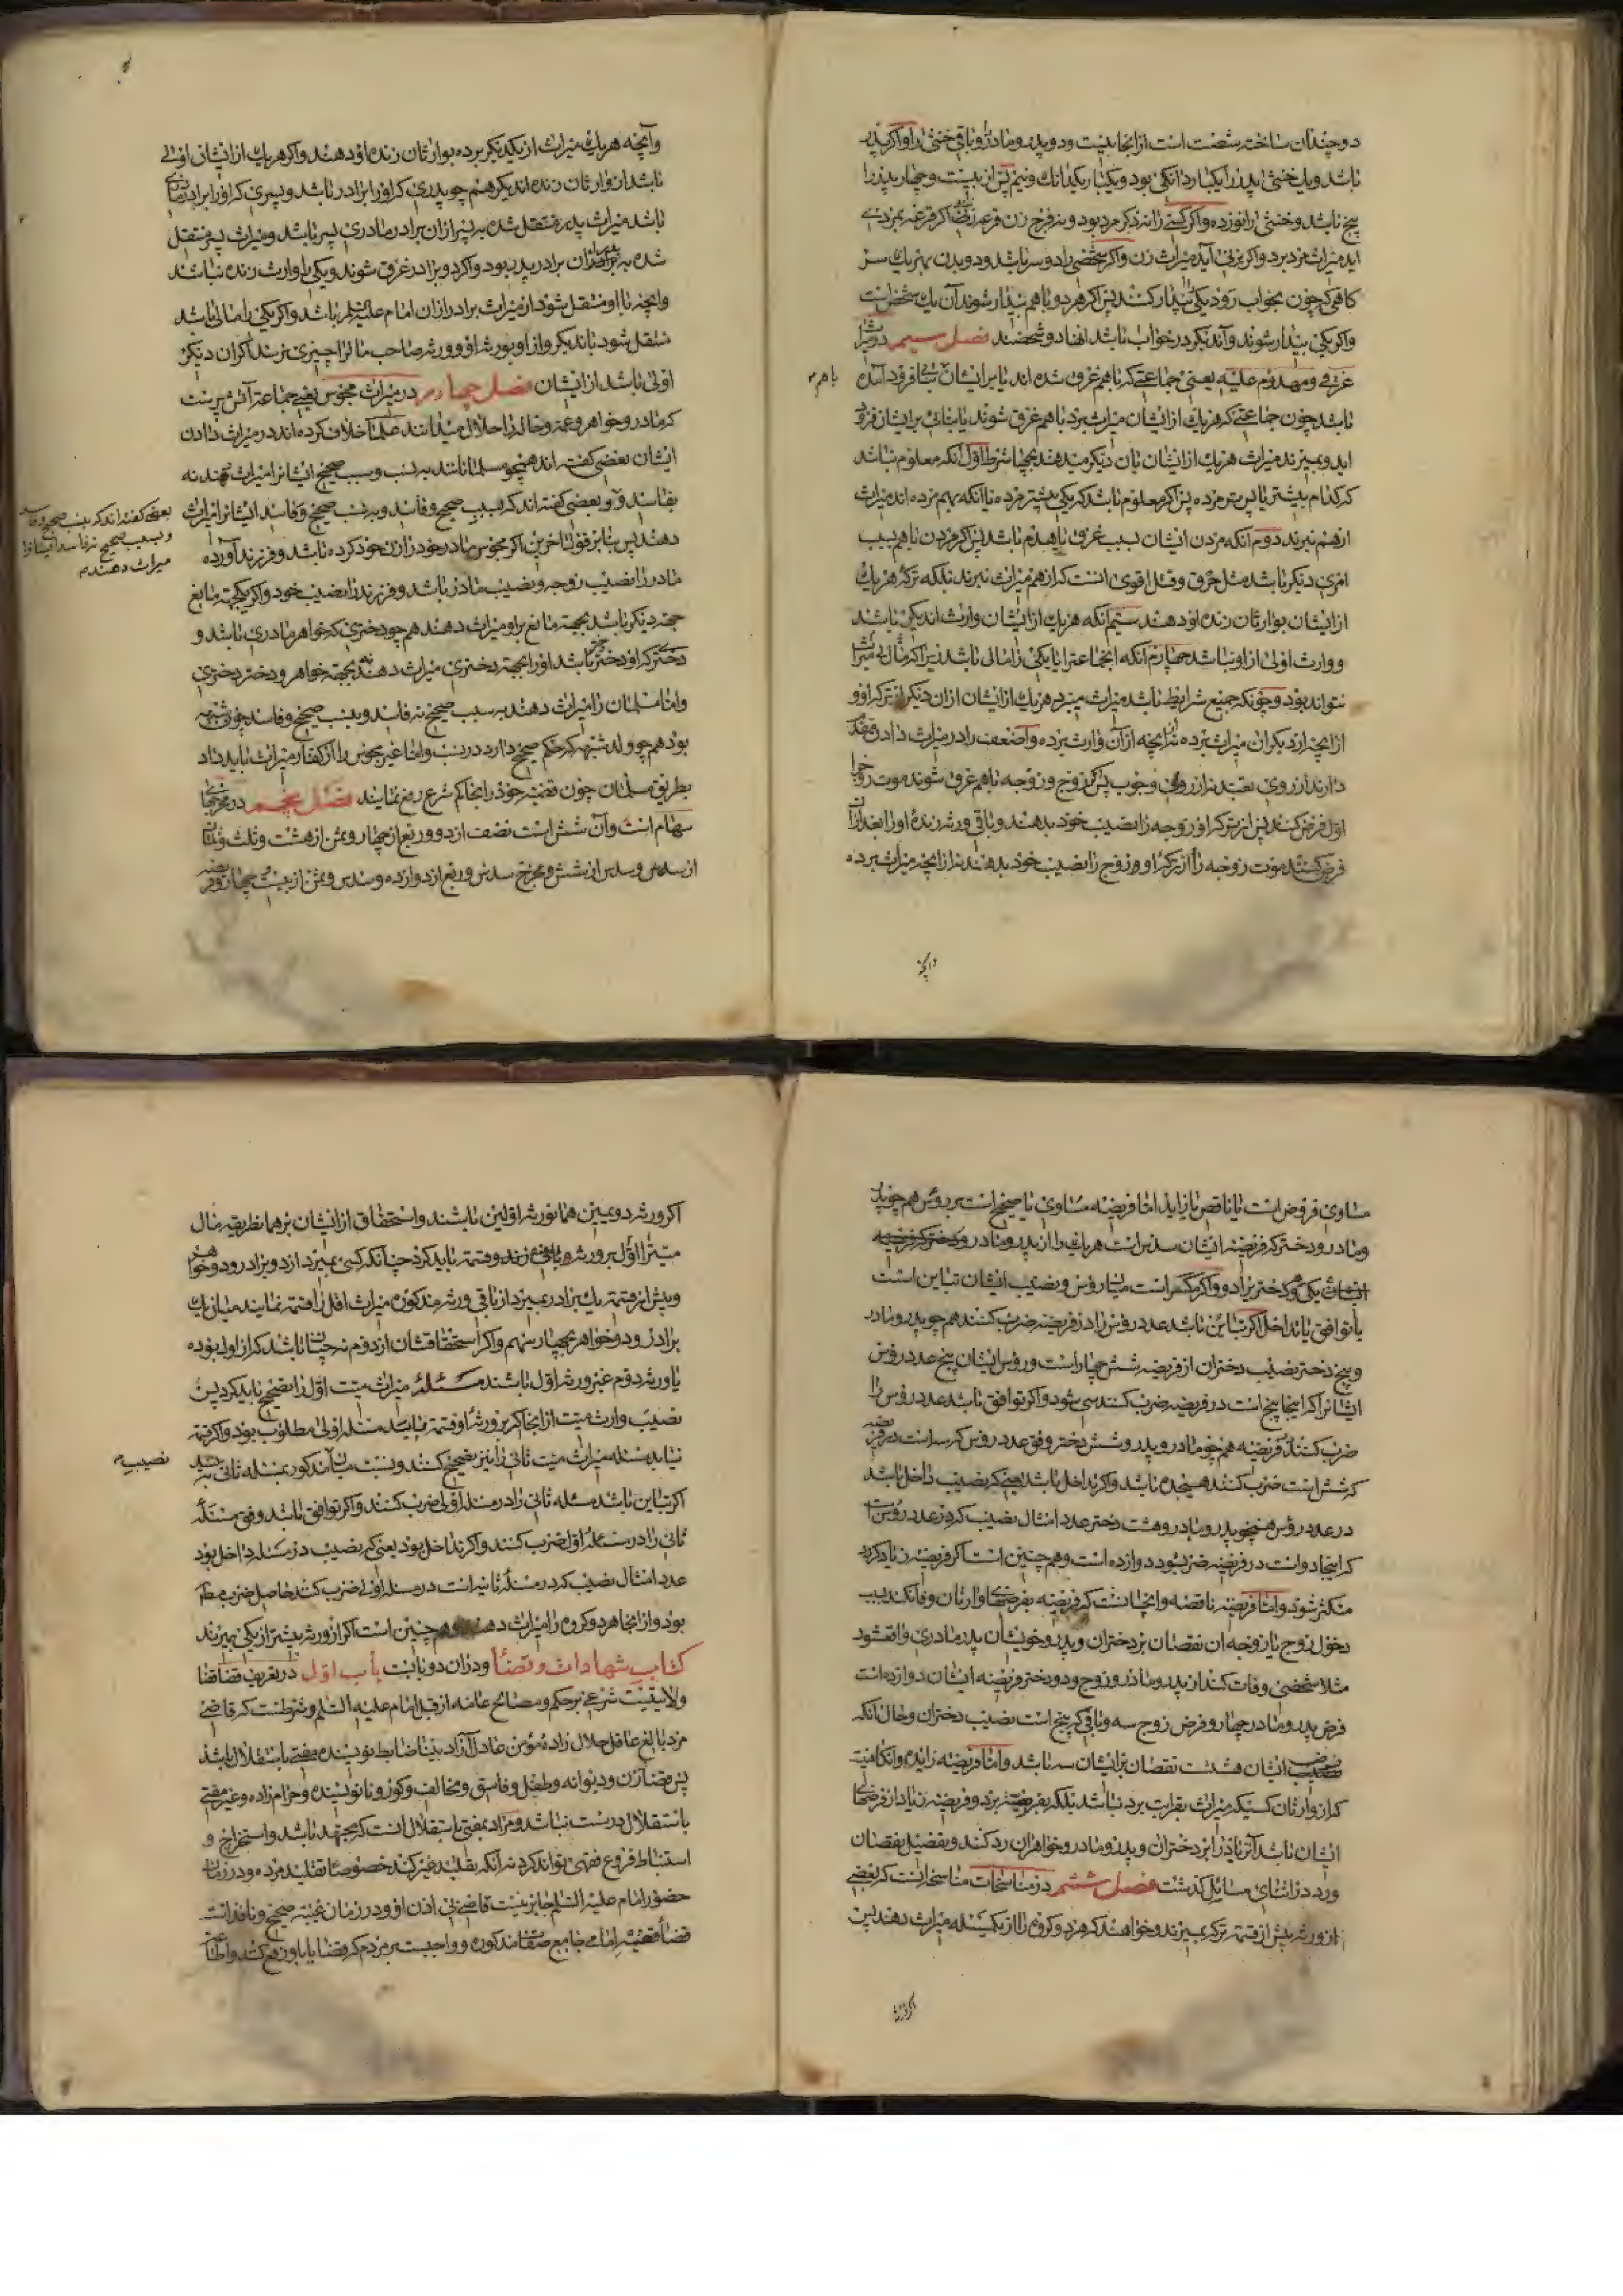 دو چندان ساختن شصت است از آنجا بیست و دو پدر و مادر را و باقی خنثی را و اگر پدر
باشد و یک خنثی پدر را یکبار دانگی بود و یکبار یکدانک و نیم پس از بیست و چهار پدر را
پنج باشد و خنثی را نوزده و اگر کسی را نه ذکر مرد بود و نه فرج زن قرعه زنند اگر قرعه بمردی
آید میراث مرد برد و اگر بزنی آید میراث زن و اگر شخصی را دو سر باشد و دو بدن بهر یک سر
کاهی که چون بخواب رود یکی را بیدار کنند پس اگر هر دو با هم بیدار شوند آن یک شخص است
و اگر یکی بیدار شوند و آن دیگر در خواب باشد آنها دو شخصند فصل سیم در میراث
غرقی و مهدوم علیه یعنی جماعتی که با هم غرق شده اند یا بر ایشان بنائی فرود آمده
باهم
باشد چون جماعتی که هر یک از ایشان میراث برد با هم غرق شوند یا بنائی بر ایشان فرود
آید و بمیرند میراث هر یک از ایشان بآن دیگر میدهند بچهار شرط اول آنکه معلوم نباشد
که کدام پیشتر یا پس تر مرده پس اگر معلوم باشد که یکی پیشتر مرده یا آنکه بهم مرده اند میراث
از هم نبرند دوم آنکه مردن ایشان بسبب غرق یا هدم باشد پس اگر مردن باهم بسبب
امری دیگر باشد مثل حرق و قتل اقوی آنست که از هم میراث نبرند بلکه ترکه هر یک
از ایشان بوارثان زنده او دهند سیم آنکه هر یک از ایشان وارث آن دیگر باشند
و وارث اولی از او نباشد چهارم آنکه آنجماعت را یا یکی را مالی باشد زیرا که مال بی میراث
نتواند بود و چونکه جمیع شرایط باشد میراث میبرد هر یک از ایشان از آن دیگر از ترکه او و
از آنچه از دیگران میراث نبرده نه از آنچه از آن وارث برده و اضعف را در میراث دادن مقدم
دارند از روی تعبد نه از روی وجوب پس اگر زوج و زوجه با هم غرق شوند موت زوج را
اول فرض کنند پس از ترکه او زوجه را نصیب خود بدهند و باقی ورثه زنده او را بعد از آن
فرض کنند موت زوجه را از ترکه او و زوج را نصیب خود بدهند نه از آنچه میراث برده
وآنچه
وآنچه هر یک میراث از یکدیگر برده بوارثان زنده او دهند و اگر هر یک از ایشان اولی
باشد از وارثان زنده آن دیگر هم چو پدری که او را برادر باشد و پسری که او را برادر مادری
باشد میراث پدر منتقل شده به پسر از آن برادر مادری پسر باشد و میراث پسر منتقل
شده به پدر از آن برادر پدر بود و اگر دو برادر غرق شوند و یکی را وارث زنده نباشد
وآنچه باو منتقل شود از میراث برادر از آن امام علیه السلم باشد و اگر یکی را مالی باشد
منتقل شود بآن دیگر و از او بورثه او و ورثه صاحب مال را چیزی نرسد اگر آن دیگر
اولی باشد از ایشان فصل چهارم در میراث مجوس یعنی جماعت آتش پرست
که مادر و خواهر و عمه و خاله را حلال میدانند علما خلاف کرده اند در میراث دادن
ایشان بعضی گفته اند همچو مسلمانانند به نسب و سبب صحیح ایشانرا میراث دهند نه
بفاسد و بعضی گفته اند که بسبب صحیح و فاسد و به نسب صحیح و فاسد ایشانرا میراث
بعضی گفته اند که بنسب صحیح و فاسد
و بسبب صحیح نه فاسد ایشانرا
میراث دهند
دهند پس بنا بر قول آخرین اگر مجوس مادر خود را زن خود کرده باشد و فرزند آورده
مادر را نصیب زوجه و نصیب مادر باشد و فرزند را نصیب خود و اگر یکجهت مانع
جهت دیگر باشد بجهت مانع براو میراث دهند هم چو دختری که خواهر مادری باشد و
دختری که او دختر دختر باشد او را بجهت دختری میراث دهند نه بجهت خواهر و دختر دختری
واما مسلمان را میراث دهند به سبب صحیح نه فاسد و بنسب صحیح و فاسد چون شبهه
بود هم چو ولد شبهه که حکم صحیح دارد در نسب و اما غیر مجوس را از کفار میراث باید داد
بطریق مسلمان چون قضیه خود را بحاکم شرع رفع نمایند فصل پنجم در مخرجهای
سهام است و آن شش است نصف از دو و ربع از چهار و ثمن از هشت و ثلث و ثلثان
از سه و سدس از شش و مخرج سدس و ربع از دوازده و سدس و ثمن از بیست و چهار و فریضه
مساوی فروض است یا ناقص یا زاید اما فریضه مساوی یا صحیح است بر رؤس هم چو پدر
و مادر و دختر که فریضه ایشان سدس است هر یک را از پدر و مادر و دختر که فریضه
ایشان یکی و دختر برادو و اگر منکسر است میان رؤس و نصیب ایشان تباین است
یا توافق یا تداخل اگر تباین باشد عدد رؤس را در فریضه ضرب کنند هم چو پدر و مادر
و پنج دختر نصیب دختران از فریضه شش چهار است و رؤس ایشان پنج عدد رؤس
ایشانرا که اینجا پنج است در فریضه ضرب کنند سی شود و اگر توافق باشد عدد رؤس را
ضرب کنند در فریضه هم چو مادر و پدر و شش دختر وفق عدد رؤس که سه است در فریضه
که شش است ضرب کنند هیجده باشد و اگر تداخل باشد یعنی که نصیب داخل باشد
در عدد رؤس همچو پدر و مادر و هشت دختر عدد امثال نصیب که در عدد رؤس است
که اینجا دو است در فریضه ضرب شود دوازده است و هم چنین است اگر فریضه زیاد کرد
منکسر شود و اما فریضه ناقصه و آنجا است که فریضه بفرضهای وارثان وفا نکند بسبب
دخول زوج یا زوجه آن نقصان بر دختران و پدر و خویشان پدر مادری واقع شود
مثلا شخصی وفات کند از پدر و مادر و زوج و دو دختر فریضه ایشان دوازده است
فرض پدر و مادر چهار و فرض زوج سه و باقی که پنج است نصیب دختران و حال آنکه
نصیب ایشان هشت نقصان بر ایشان سه باشد و اما فریضه زایده و آنگاهیست
که از وارثان کسیکه میراث بقرابت برد نباشد بلکه بفریضه برد و فریضه زیاد از فرضهای
ایشان باشد آن زیاد را بر دختران و پدر و مادر و خواهران رد کنند و تفصیل نقصان
و رد در اثنای مسائل گذشت فصل ششم در مناسخات مناسخه آنست که بعضی
از ورثه پیش از قسمت ترکه بمیرند و خواهند که هر دو گروه را از یک مسئله میراث دهند پس
اگر ورثه
اگر ورثه دومین همان ورثه اولین باشند و استحقاق ایشان بر همان طریقه مال
میت را اول بر ورثه باقی زنده قسمت باید کرد چنانکه کسی بمیرد از دو برادر و دو خواهر
و پیش از قسمت یک برادر بمیرد از باقی ورثه مذکوره میراث اول را قسمت نمایند میان یک
برادر و دو خواهر بچهار سهم و اگر استحقاقشان از دوم نه چنان باشد که از اول بوده
یا ورثه دوم غیر ورثه اول باشند مسئله میراث میت اول را تصحیح باید کرد پس
نصیب وارث میت از آنجا اگر بر ورثه او قسمت یابد مسئله اولی مطلوب بود و اگر قسمت
نیابد مسئله میراث میت ثانی را نیز تصحیح کنند و نسبت میان مذکور بمسئله ثانی بینند
نصیب
اگر تباین باشد مسئله ثانی را در مسئله اولی ضرب کنند و اگر توافق باشد وفق مسئله
ثانی را در مسئله اول ضرب کنند و اگر تداخل بود یعنی که نصیب در مسئله داخل بود
عدد امثال نصیب که در مسئله ثانیه است در مسئله اولی ضرب کنند حاصل ضرب مطلوب
بود و از آنجا هر دو گروه را میراث دهند و هم چنین است اگر از ورثه بیشتر از یکی بمیرند
کتاب شهادات و قضا و در آن دو بابست باب اول در تعریف قضا قضا
ولایتیست شرعی بر حکم و مصالح عامه از قبل امام علیه السلم و شرطست که قاضی
مرد بالغ عاقل حلال زاده مؤمن عادل آزاد بینا ضابط نویسنده مفتی باستقلال باشد
پس قضا زن و دیوانه و طفل و فاسق و مخالف و کور و نانویسنده و حرام زاده و غیر مفتی
باستقلال درست نباشد و مراد بمفتی باستقلال آنست که مجتهد باشد و استخراج و
استنباط فروع فقهی تواند کرد نه آنکه تقلید غیر کند خصوصا تقلید مرده و در زمان
حضور امام علیه السلم جایز نیست قاضی بی اذن او و در زمان غیبت صحیح و نافذ است
قضا فقیه امامی جامع صفات مذکوره و واجبست بر مردم که قضایا باو رفع کنند و اطاعت